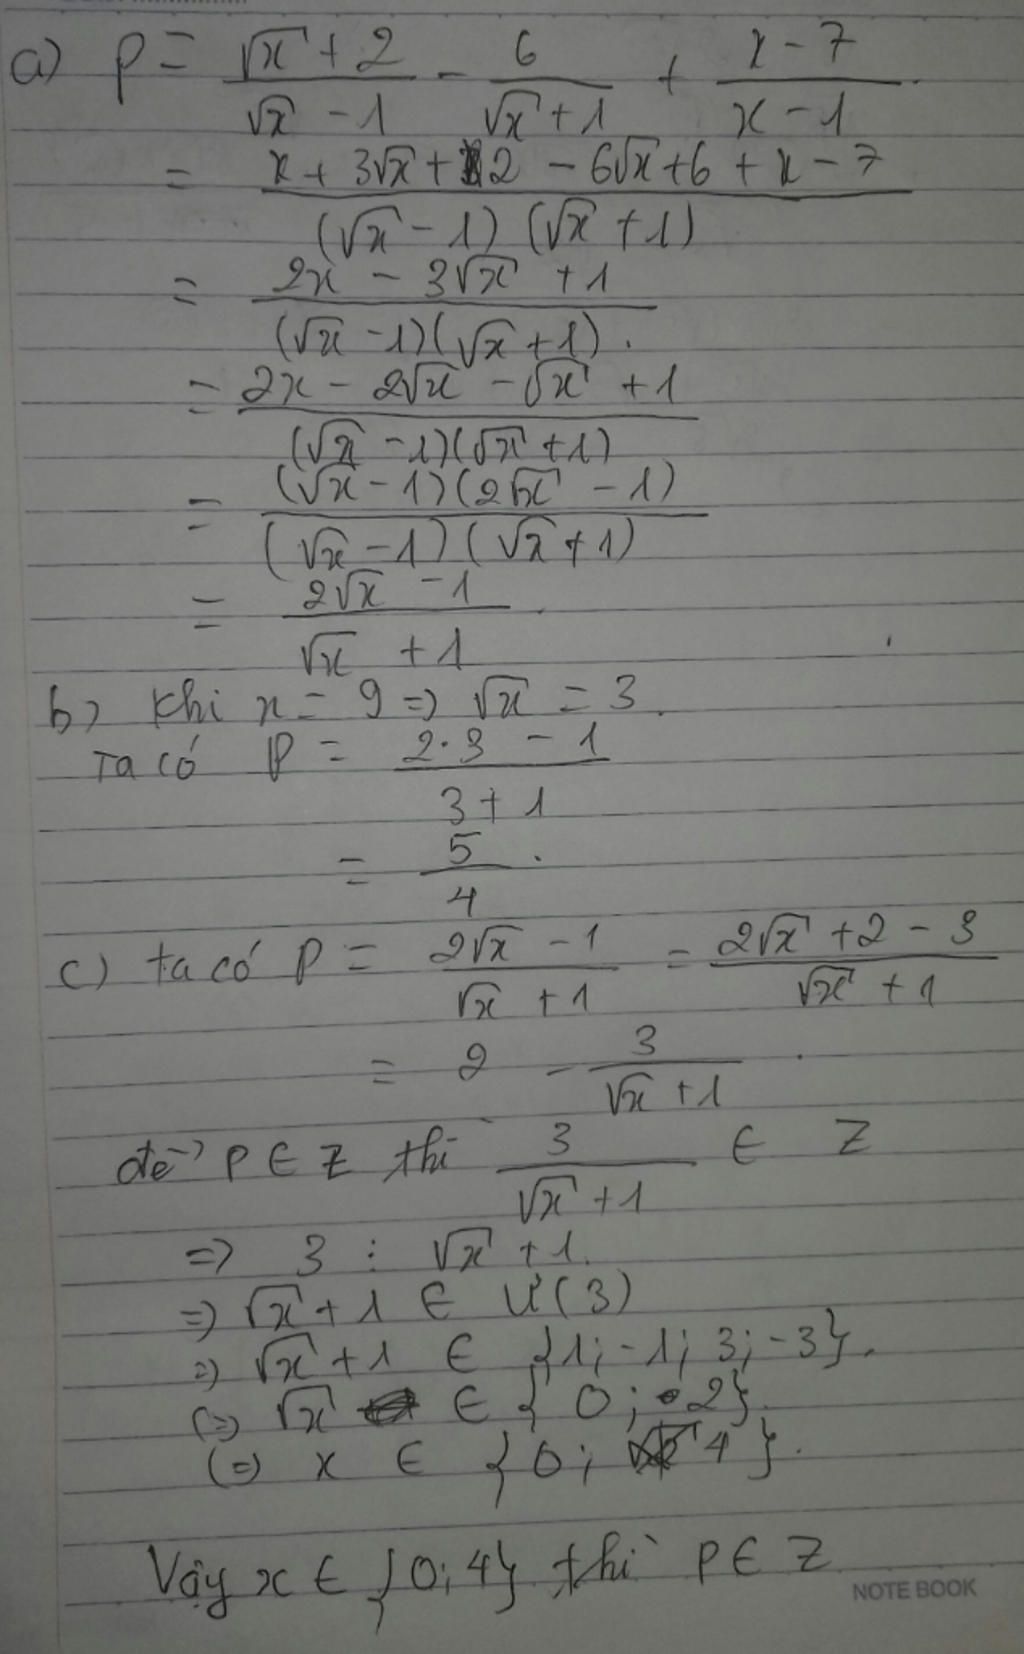 a) P = (√x + 2)/(√x - 1) - 6/(√x + 1) + (x - 7)/(x - 1).
= (x + 3√x + 2 - 6√x + 6 + x - 7)/((√x - 1)(√x + 1))
= (2x - 3√x + 1)/((√x - 1)(√x + 1)).
= (2x - 2√x - √x + 1)/((√x - 1)(√x + 1))
= ((√x - 1)(2√x - 1))/((√x - 1)(√x + 1))
= (2√x - 1)/(√x + 1).
b) Khi x = 9 => √x = 3.
Ta có P = (2.3 - 1)/(3 + 1)
= 5/4.
c) ta có P = (2√x - 1)/(√x + 1) = (2√x + 2 - 3)/(√x + 1)
= 2 - 3/(√x + 1).
để P ∈ Z thì 3/(√x + 1) ∈ Z
=> 3 ⋮ √x + 1.
=> √x + 1 ∈ Ư(3)
=> √x + 1 ∈ {1; -1; 3; -3}.
(=> √x ∈ {0; 2}.
(=) x ∈ {0; 4}.
Vậy x ∈ {0; 4} thì P ∈ Z
NOTE BOOK